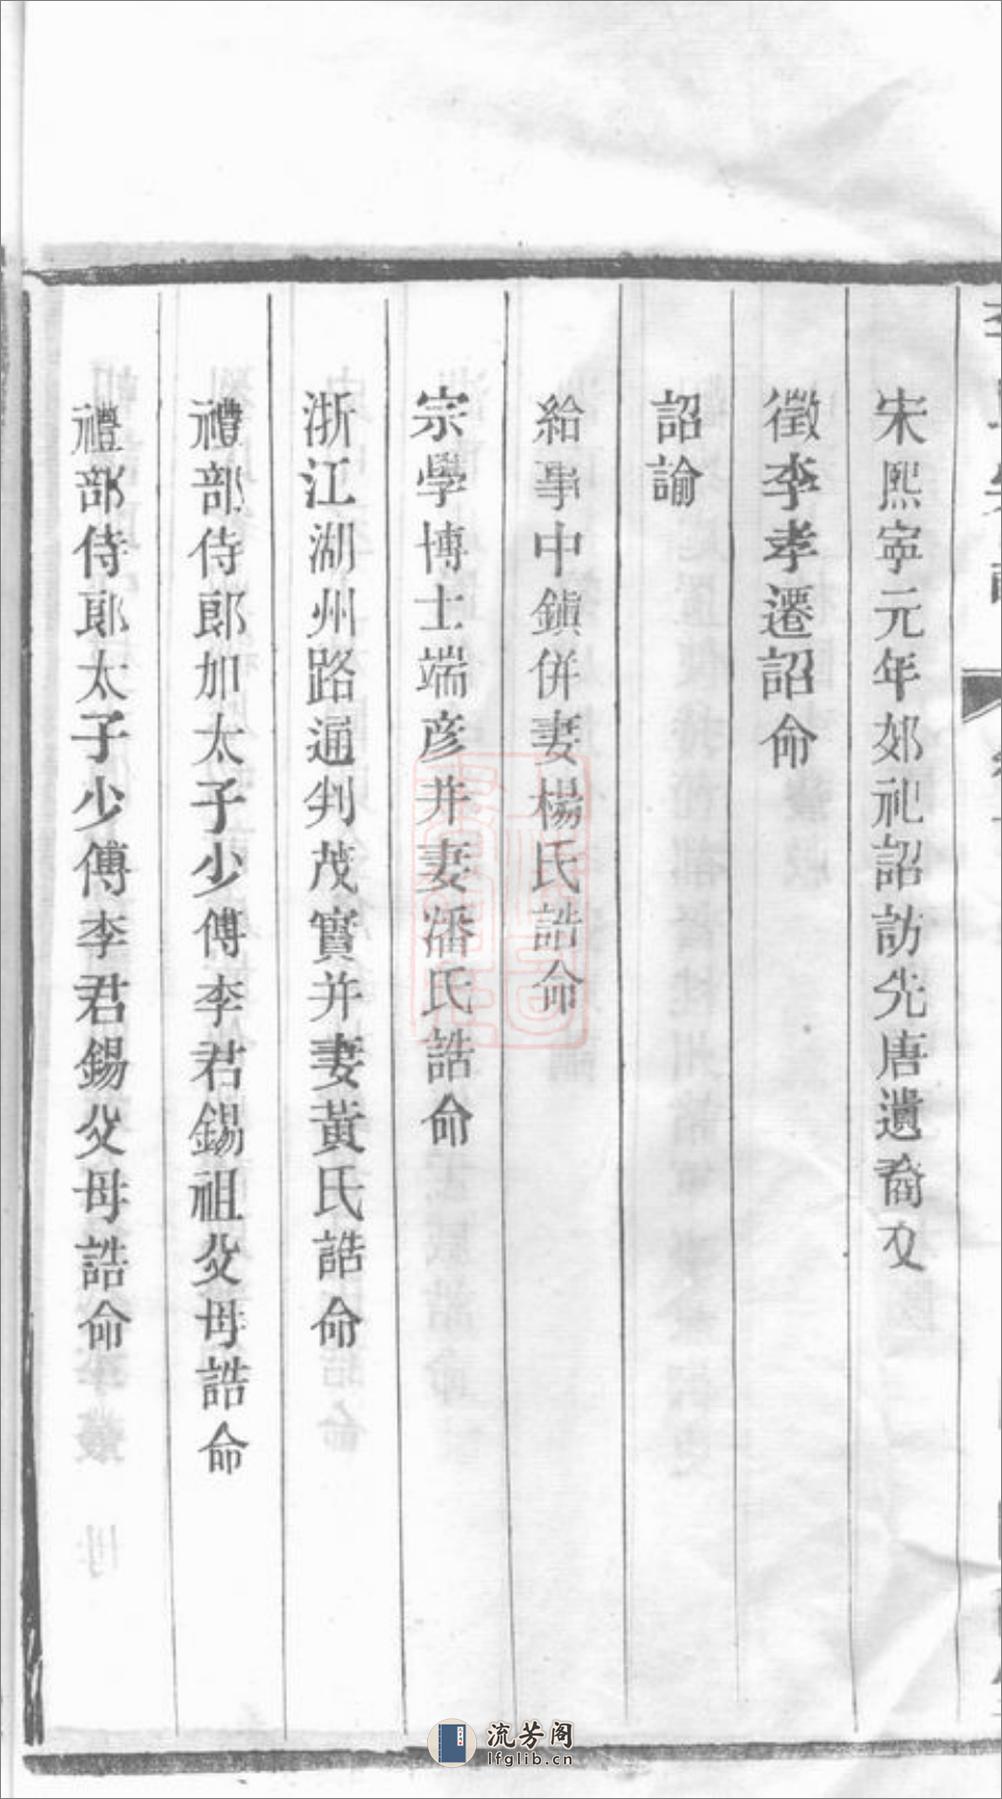 宋熙寧元年郊祀詔訪先唐遺裔文
徵李孝遷詔命
詔諭
給事中鎭併妻楊氏誥命
宗學博士端彦并妻潘氏誥命
浙江湖州路通判茂實并妻黃氏誥命
禮部侍郎加太子少傅李君錫祖父母誥命
禮部侍郎太子少傅李君錫父母誥命
流芳阁
lfglib.cn